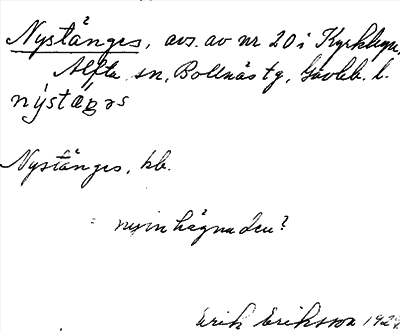 Nystänges, avs. av nr 20 i Kyrkbyn,
Alfta sn, Bollnäs tg, Gävleb. l.
Nystänges, kb.
nyinhägnaden?
Erik Eriksson